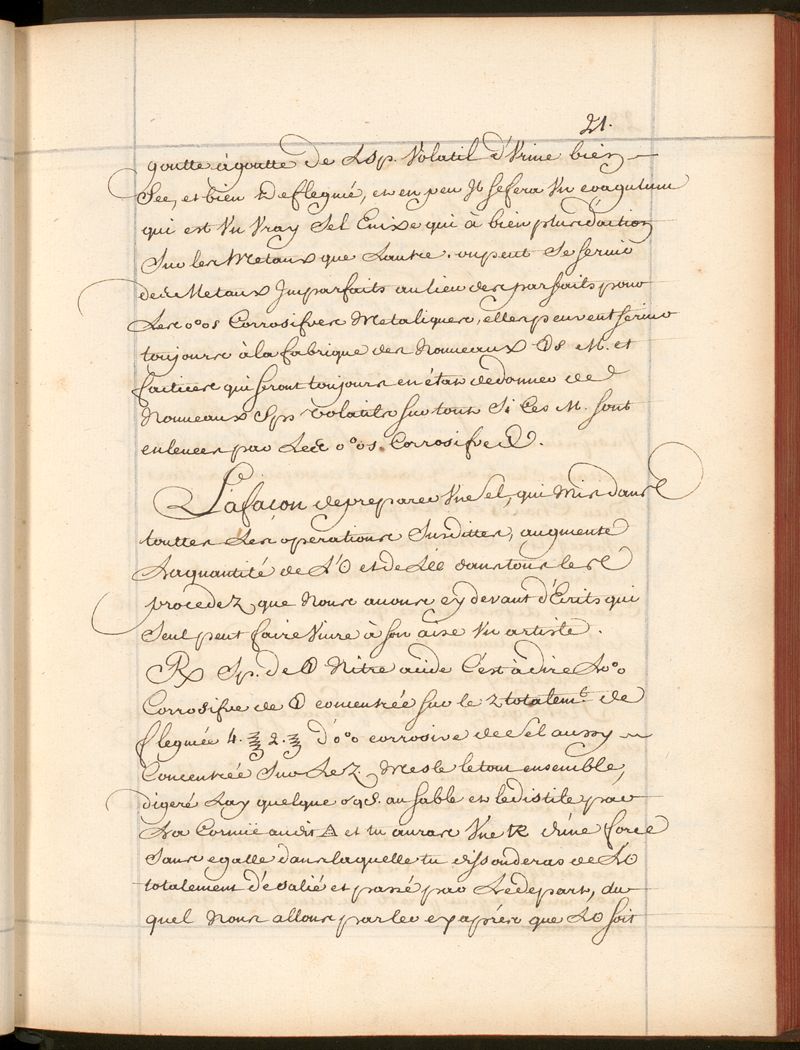 21.
goutte à goutte de L'Sp. Volatil d'Vrine bien
See, et bien deflegmé, et en peu Jl se fera Vn coagulum
qui est Vn Vray Sel Enixe qui à bien plus d'action
Sur les Metaux que Lautre. on peut Se servir
des Metaux Jmparfaits au lieu des parfaits pour
Les Corrosives Metaliques, elles peuvent servir
toujours à la fabrique des Nouveaux M. et
factices qui seront toujours en état de donner de
Nouveaux Sps Volatils sur tout Si Ces M. sont
enlevées par Les Corrosives.
La facon de preparer Vne Sel, qui Mis dans
touttes Les operations Susdittes, augmente
La quantité de L'O et de dans tous les
procedez que Nous avons cy devant d'Ecrits qui
Seul peut faire Vivre à son aise Vn artiste.
Rx Sp. de Nitre acide C'est à dire
Corrosive de concentrée sur le 2 totalemt. de
flegmée 4. 2. corrosive de Sel aussy
Concentrée Sur Le 2. Mesle le tout ensemble,
digeré Lay quelque au Sable et le distile par
La Cornüe audit △ et tu auras Vne d'une force
Sans egalle dans laquelle tu dissouderas de LO
totalement d'esalié et passé par Le depart, du
quel Nous allons parler cy apres que LO soit